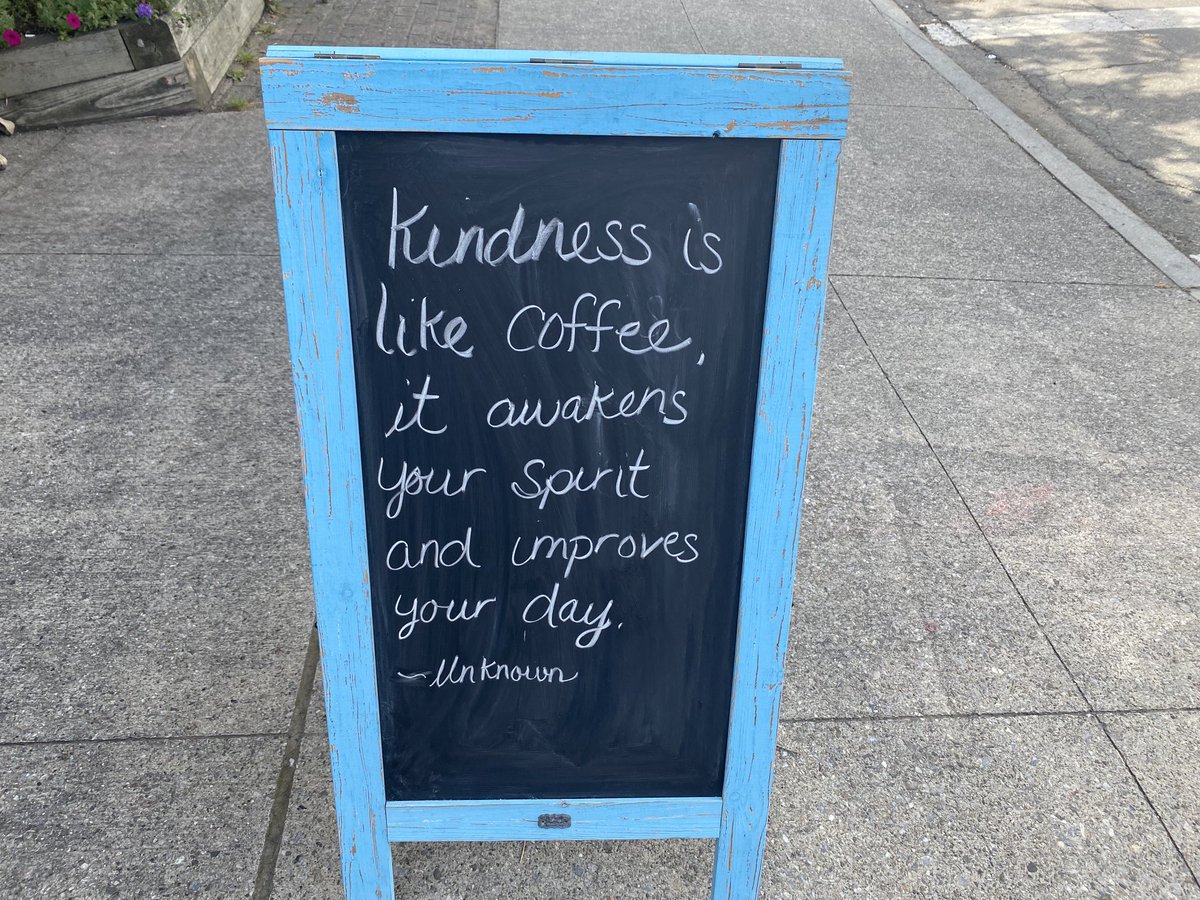 Kindness is
like Coffee,
it awakens
your Spirit
and improves
your day.
~Unknown